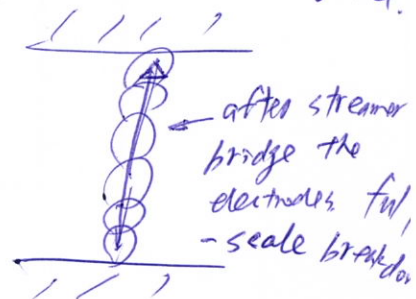 after streamer
bridge the
electrodes ful
-scale breakdo